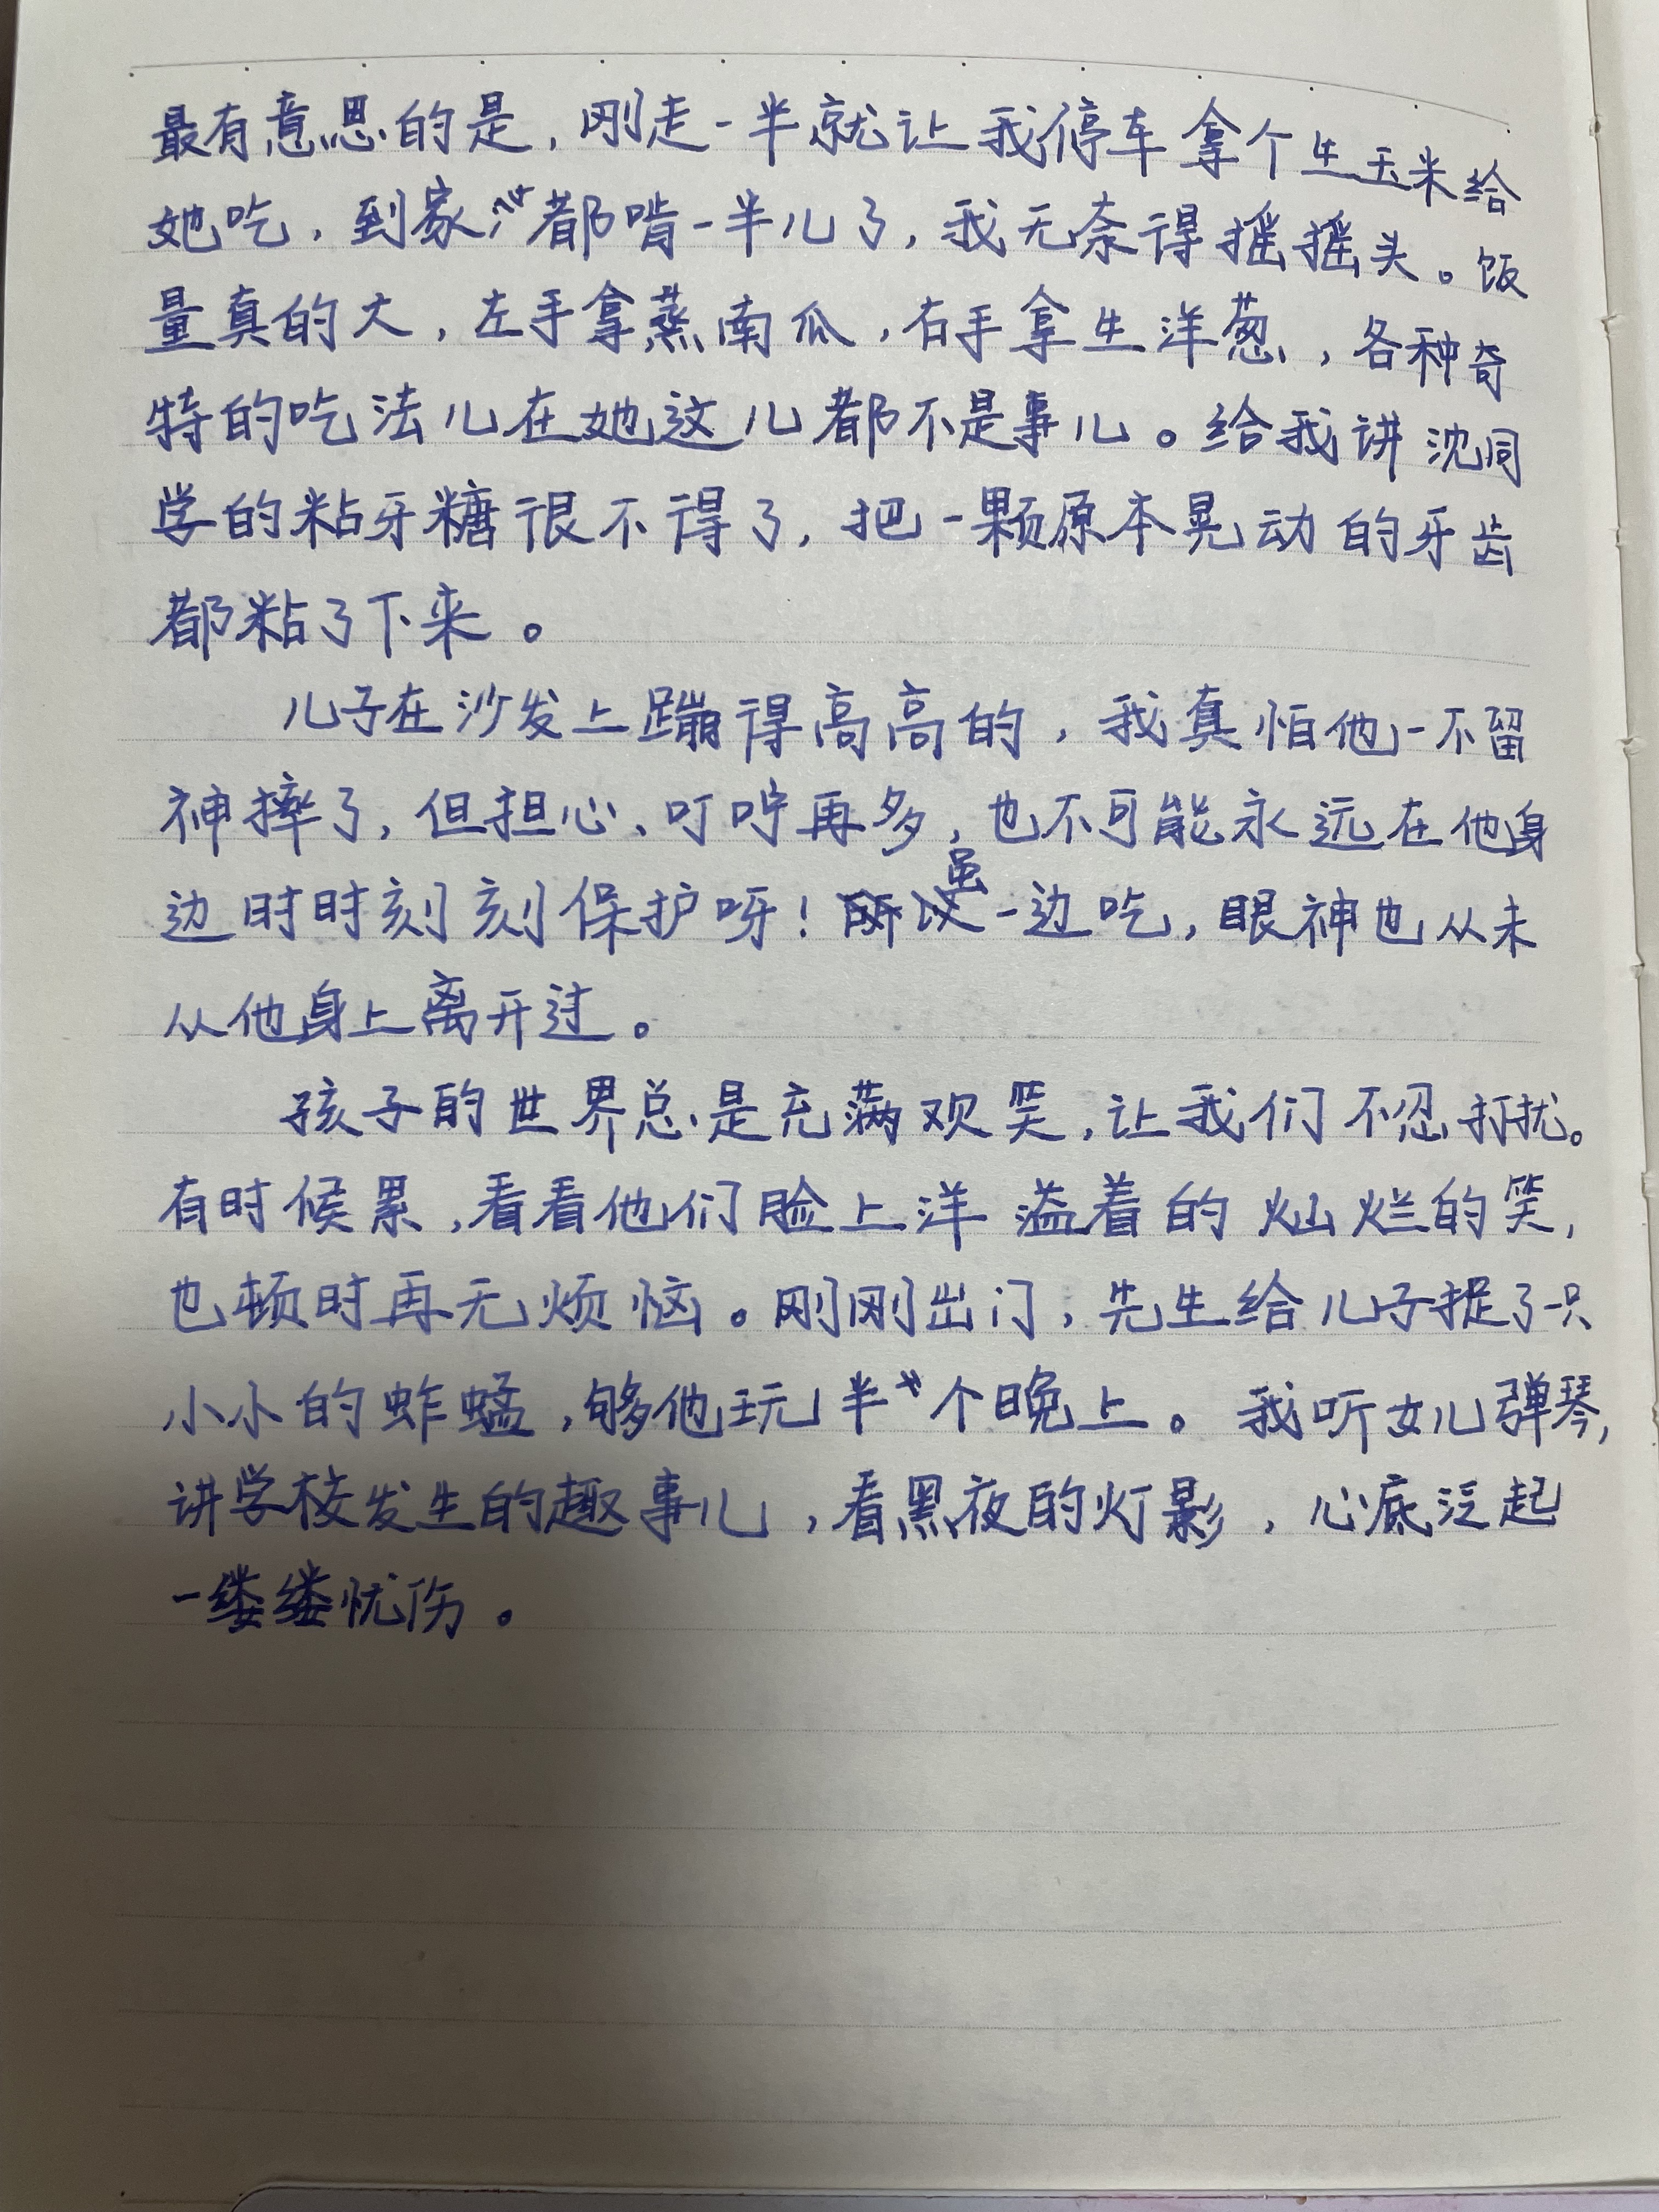 最有意思的是，刚走一半就让我停车拿个生玉米给
她吃，到家都啃一半儿了，我无奈得摇摇头。饭
量真的大，左手拿蒸南瓜，右手拿生洋葱，各种奇
特的吃法儿在她这儿都不是事儿。给我讲沈同
学的粘牙糖很不得了，把一颗原本晃动的牙齿
都粘了下来。
儿子在沙发上蹦得高高的，我真怕他一不留
神摔了，但担心、叮咛再多，也不可能永远在他身
边时时刻刻保护呀！虽一边吃，眼神也从未
从他身上离开过。
孩子的世界总是充满欢笑，让我们不忍打扰。
有时候累，看看他们脸上洋溢着的灿烂的笑，
也顿时再无烦恼。刚刚出门，先生给儿子捉了一只
小小的蚱蜢，够他玩半个晚上。我听女儿弹琴，
讲学校发生的趣事儿，看黑夜的灯影，心底泛起
一缕缕忧伤。